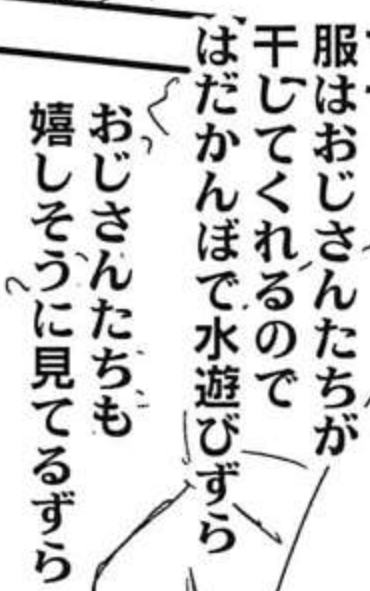 服はおじさんたちが
干してくれるので
はだかんぼで水遊びずら
おじさんたちも
嬉しそうに見てるずら